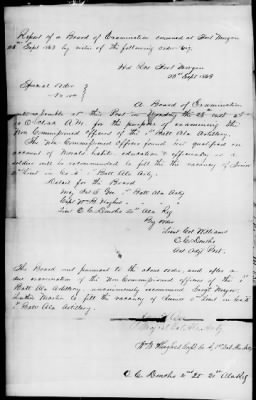 Report of a Board of Examination convened at Fort Morgan
Sept 1863 by virtue of the following order viz.
Hd Qrs Fort Morgan
Sept 1863
Special Order
No
A Board of Examination
will assemble at this Post on Monday the 28 inst at
o'clock A.M. for the purpose of examining the
Non Commissioned officers of the 1st Batt Ala Artillery.
The Non Commissioned Officers found best qualified on
account of Morals habits education & efficiency as a
soldier will be recommended to fill the the vacancy of Junior
2d Lieut in Co 1st Batt Ala Arty.
Detail for the Board
Maj Gee 1st Batt Ala Arty
Capt Wm Hughes
Lieut C. C. Ala Reg
By order
Lieut Col Williams
Act Adjt Post.
The Board met pursuant to the above order, and after a
due examination of the Non Commissioned officers of the 1st
Batt Ala Artillery, unanimously recommend Sergt Major
to fill the vacancy of Junior 2d Lieut in Co
Batt Ala Artillery.
Major 1st Bat Ala Arty
Capt Co 1st Bat Ala Arty
C. C. 2d Lt 21st Ala Reg